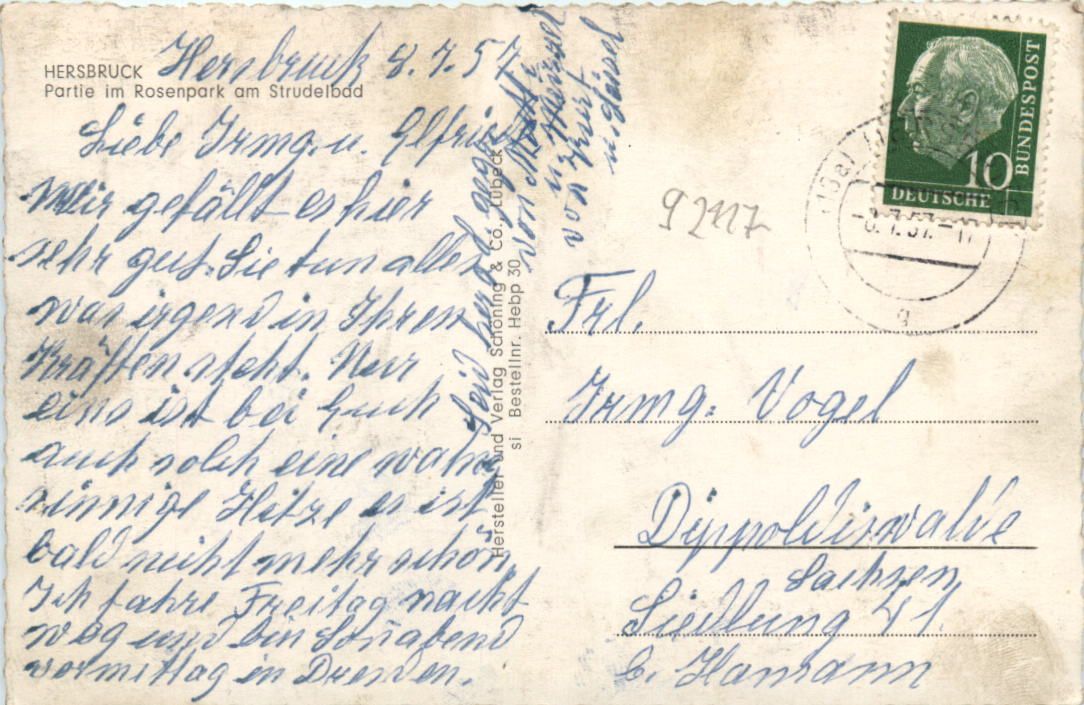 HERSBRUCK
Partie im Rosenpark am Strudelbad
Hersbruck 8.7.57
Liebe Irmg. u. Elfried
Mir gefällt es hier
sehr gut. Sie tun alles
was irgend in Ihren
Kräften steht. Nur
eins ist bei Euch
auch solch eine wahn
sinnige Hitze es ist
bald nicht mehr schön.
Ich fahre Freitag nacht
weg und bin Sonnabend
vormittag in Dresden.
Seid herzl. gegr.
von
u.
von
u.
Hersteller und Verlag Schöning & Co., Lübeck
si Bestellnr. Hebp 30
9 2117
DEUTSCHE
BUNDESPOST
10
-8.7.57.-17
a
Frl.
Irmg. Vogel
Dippoldiswalde
Sachsen
Siedlung 41.
b. Hamann